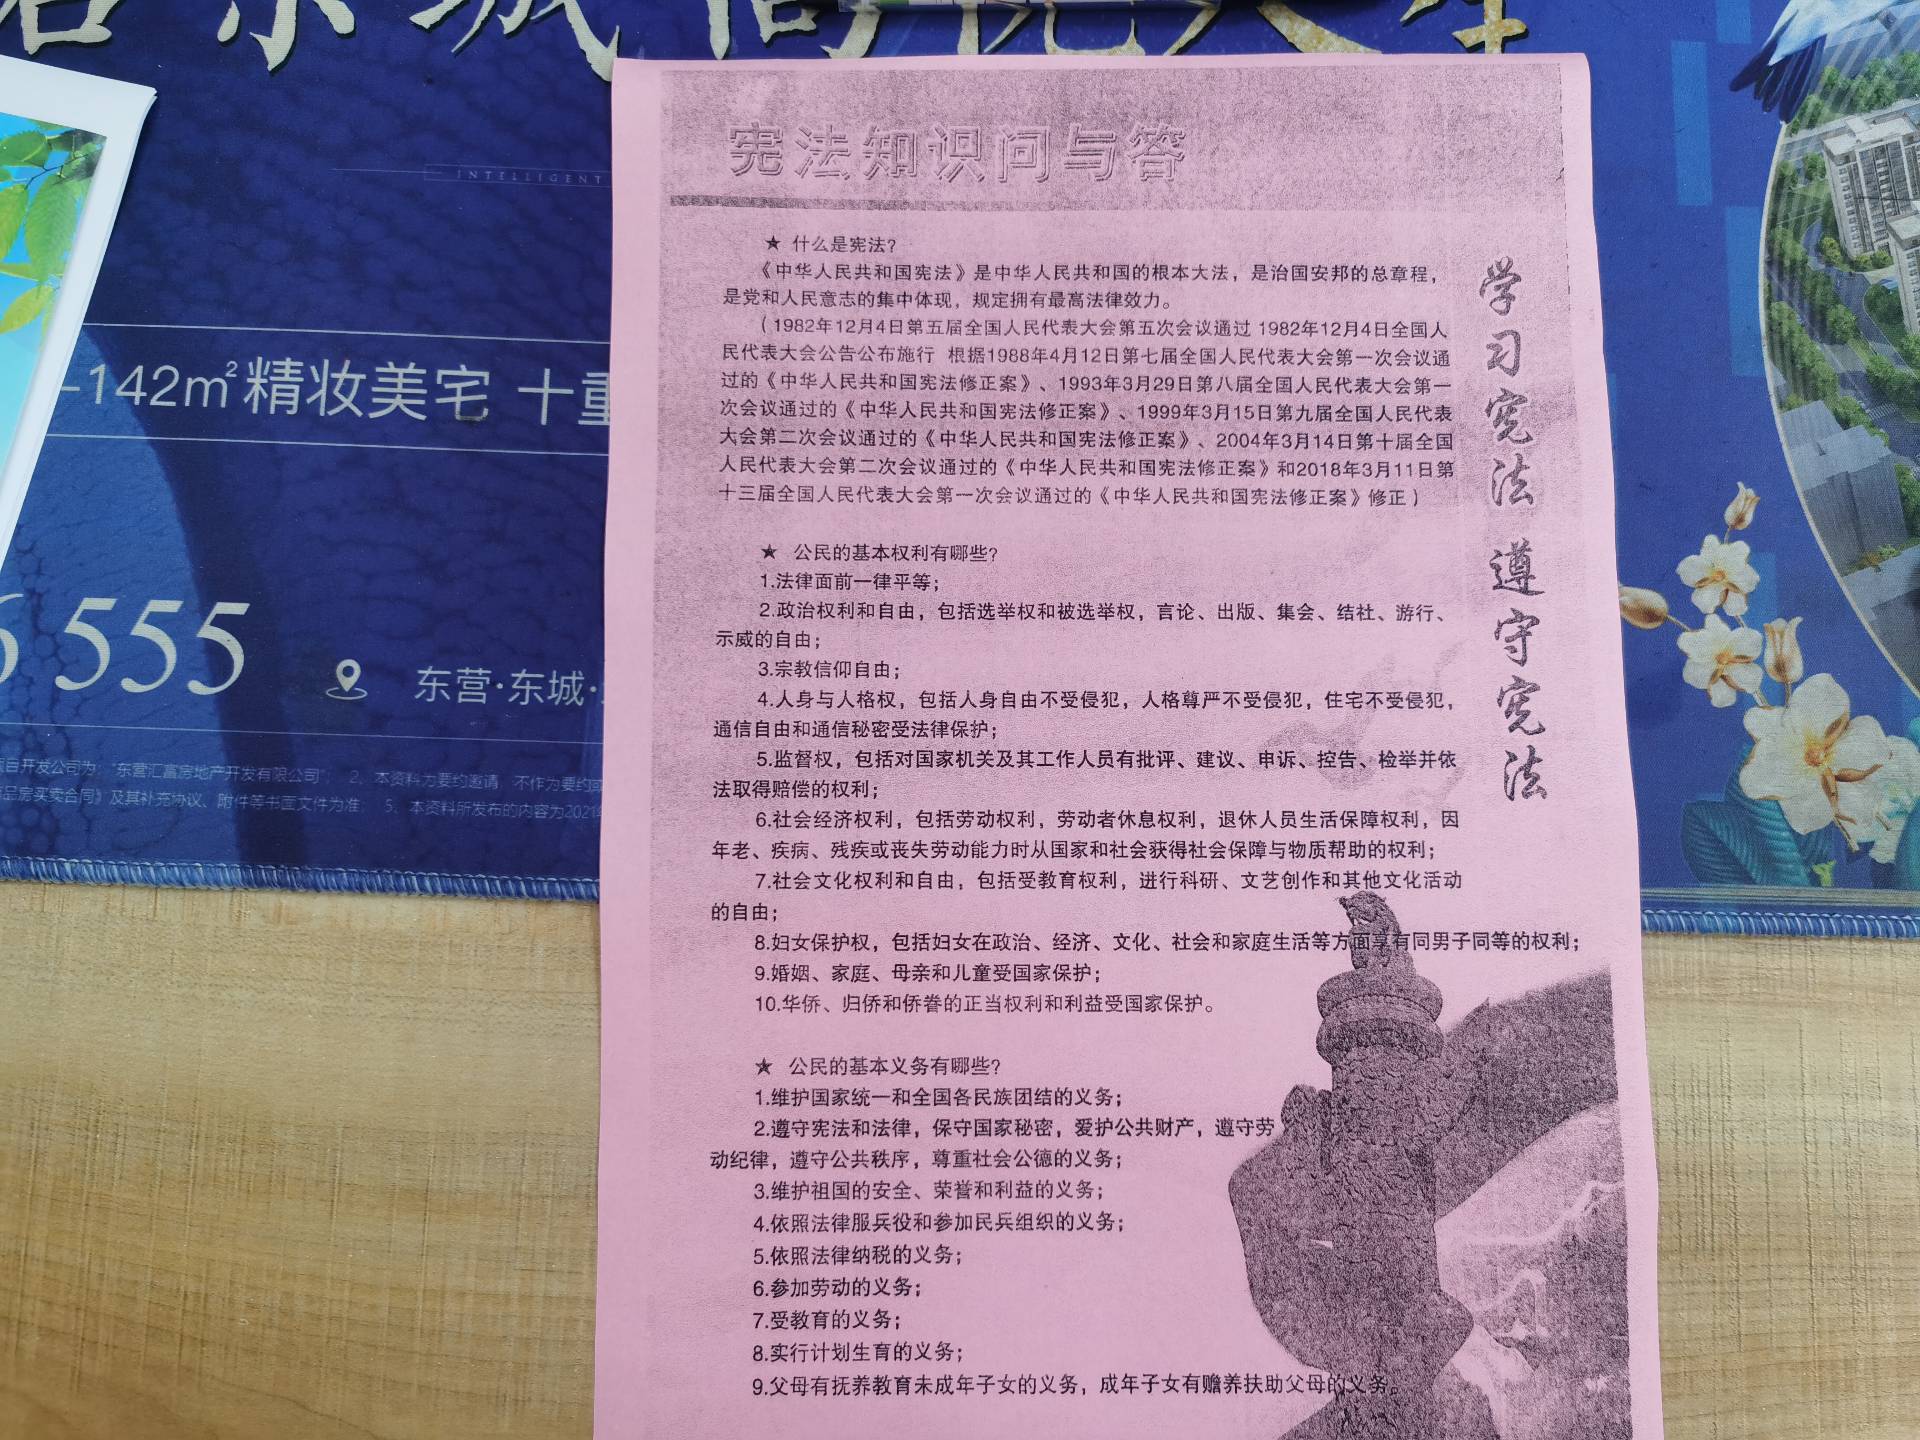 INTELLIGENT
-142㎡精妆美宅 十重
555
东营·东城·
目开发公司为："东营汇富房地产开发有限公司" 2、本资料为要约邀请，不作为要约或
品房买卖合同》及其补充协议、附件等书面文件为准 5、本资料所发布的内容为2021年
宪法知识问与答
★ 什么是宪法?
《中华人民共和国宪法》是中华人民共和国的根本大法，是治国安邦的总章程，
是党和人民意志的集中体现，规定拥有最高法律效力。
（1982年12月4日第五届全国人民代表大会第五次会议通过 1982年12月4日全国人
民代表大会公告公布施行 根据1988年4月12日第七届全国人民代表大会第一次会议通
过的《中华人民共和国宪法修正案》、1993年3月29日第八届全国人民代表大会第一
次会议通过的《中华人民共和国宪法修正案》、1999年3月15日第九届全国人民代表
大会第二次会议通过的《中华人民共和国宪法修正案》、2004年3月14日第十届全国
人民代表大会第二次会议通过的《中华人民共和国宪法修正案》和2018年3月11日第
十三届全国人民代表大会第一次会议通过的《中华人民共和国宪法修正案》修正）
★ 公民的基本权利有哪些?
1.法律面前一律平等；
2.政治权利和自由，包括选举权和被选举权，言论、出版、集会、结社、游行、
示威的自由；
3.宗教信仰自由；
4.人身与人格权，包括人身自由不受侵犯，人格尊严不受侵犯，住宅不受侵犯，
通信自由和通信秘密受法律保护；
5.监督权，包括对国家机关及其工作人员有批评、建议、申诉、控告、检举并依
法取得赔偿的权利；
6.社会经济权利，包括劳动权利，劳动者休息权利，退休人员生活保障权利，因
年老、疾病、残疾或丧失劳动能力时从国家和社会获得社会保障与物质帮助的权利；
7.社会文化权利和自由，包括受教育权利，进行科研、文艺创作和其他文化活动
的自由；
8.妇女保护权，包括妇女在政治、经济、文化、社会和家庭生活等方面享有同男子同等的权利；
9.婚姻、家庭、母亲和儿童受国家保护；
10.华侨、归侨和侨眷的正当权利和利益受国家保护。
★ 公民的基本义务有哪些?
1.维护国家统一和全国各民族团结的义务；
2.遵守宪法和法律，保守国家秘密，爱护公共财产，遵守劳
动纪律，遵守公共秩序，尊重社会公德的义务；
3.维护祖国的安全、荣誉和利益的义务；
4.依照法律服兵役和参加民兵组织的义务；
5.依照法律纳税的义务；
6.参加劳动的义务；
7.受教育的义务；
8.实行计划生育的义务；
9.父母有抚养教育未成年子女的义务，成年子女有赡养扶助父母的义务。
学习宪法 遵守宪法